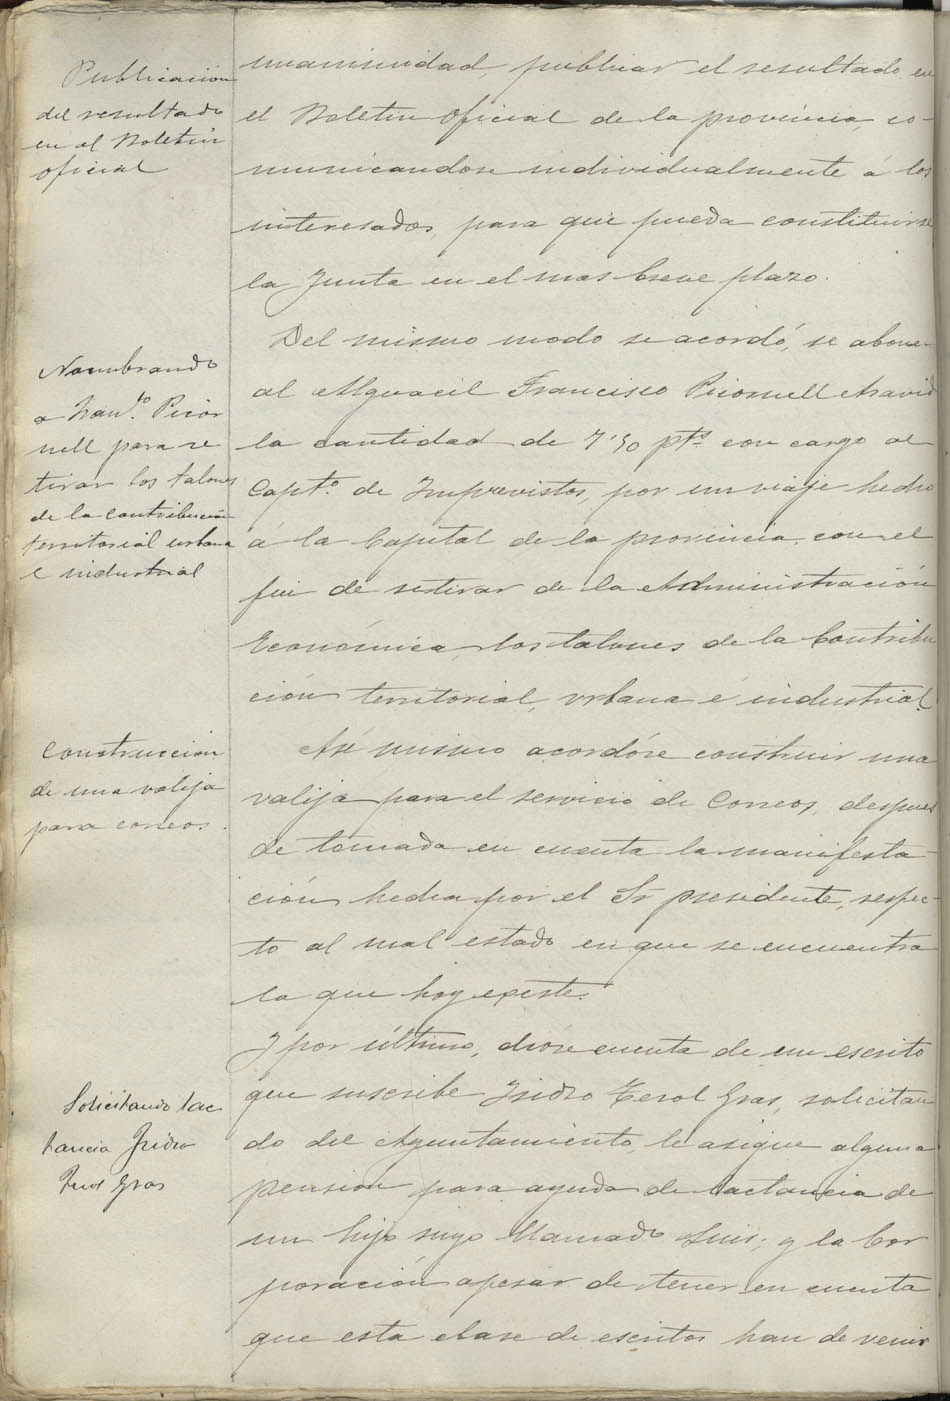 Publicación
del resultado
en el Boletín
oficial
unanimidad, publicar el resultado en
el Boletin Oficial de la provincia, co-
municandose individualmente á los
interesados, para que pueda constituirse
la Junta en el mas breve plazo.
Nombrando
a Fran.co Picor
nell para re
tirar los talones
de la contribución
territorial urbana
e industrial
Del mismo modo se acordó, se abone
al Alguacil Francisco Picornell
la cantidad de 7'50 pts. con cargo al
Capt.o de Imprevistos, por un viaje hecho
á la Capital de la provincia, con el
fin de retirar de la Administración
Económica, los talones de la Contribu
ción territorial, urbana é industrial.
Construcción
de una valija
para correos.
Asi mismo acordóse construir una
valija para el servicio de Correos, despues
de tomada en cuenta la manifesta-
ción hecha por el Sr presidente, respec-
to al mal estado en que se encuentra
la que hoy existe.
Solicitando lac
tancia Isidro
Terol Gras
Y por último, dióse cuenta de un escrito
que suscribe Isidro Terol Gras, solicitan
do del Ayuntamiento, le asigne alguna
pension para ayuda de lactancia de
un hijo suyo llamado Luis; y la Cor
poración apesar de tener en cuenta
que esta clase de escritos han de venir